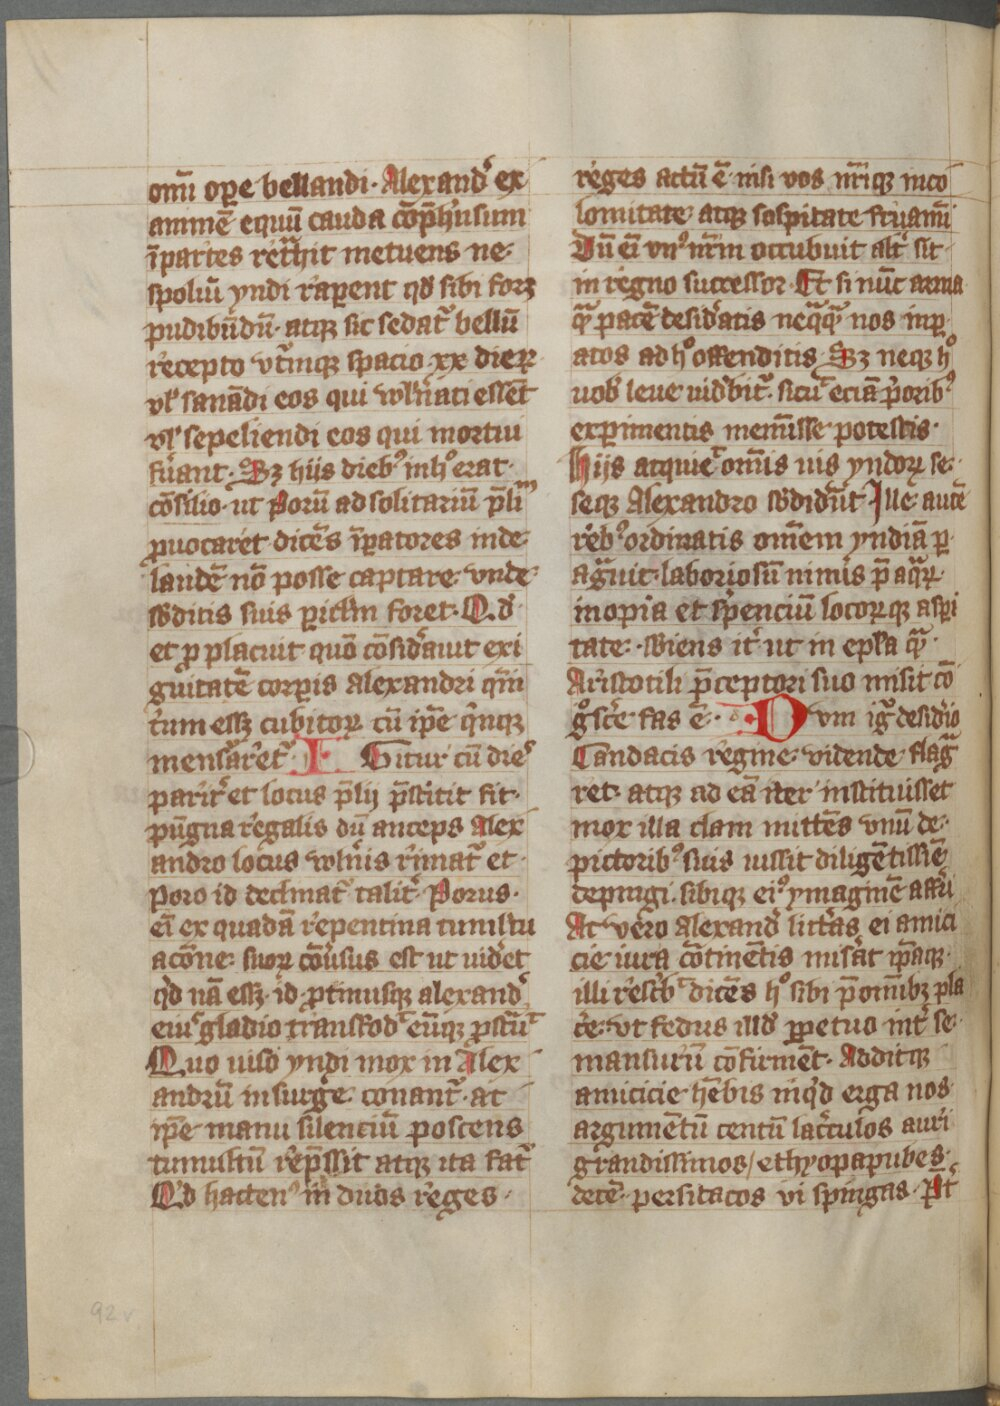 om̄i op̲e bellandi · Alexand᷒ ex
animē equū cauda cōp̄hēsum
ī partes ret̄hit metuens ne
spoliū yndi rap̲ent qd̄ sibi forꝫ
pudibūdū · atqꝫ sic sedat᷒ bellū
recepto vt̄inqꝫ spacio · xx dierꝝ
vl̄ sanādi eos qui vvln̄ati essēt
vl̄ sepeliendi eos qui mortui
fūant · Sꝫ hijs diebꝰ inhᵒ erat
cōsilio · ut Porū ad solitariū p̄liᵐ
ꝓuocaret dicēs īꝑatores inde
laudē nō posse captare · vnde
sb̄ditis suis ꝑiclm̄ foret · Q d̄
et ꝑ placuit quō cōsid̄auit exi
guitatē corꝑis alexandri qm̄i
t̄um essꝫ cubitoꝝ cū ip̄e q̄nqꝫ
mensuraret᷒ I Gitur cū die᷒
parit᷒ et locus p̄lij p̄stitit fit ·
pūgna regalis dū anceps Alex
andro locus vvln̄is rimat᷒ et ·
poro id declinat᷒ talit᷒ · Porus ·
eī ex quadā repentina tumltu
acōne suoꝝ cōūsus est ut uid̄et
qd̄ nā essꝫ · id ꝓtinusqꝫ alexand᷒
eiu᷒ gladio transfod᷒ eūqꝫ ꝓstū᷒
Quo uiso yndi mox in Alex
andrū insurge conant᷒ · at
ip̄e manu silenciū poscens
tumultū rep̄ssit atqꝫ ita fat᷒
Qd̄ hactenꝰ in duos reges ·
reges actū ē · nisi vos nr̄iqꝫ inco
lomitate atqꝫ sospitate fruamī
Dū eī vnꝰ nr̄m occubuit alt᷒ sit
in regno successor · Et si nūc arma
qͣ pacē desid̄atis neqͣqͣ nos inp̲
atos ad hᵒ offenditis · Sꝫ neqꝫ hᵒ
uob᷒ leue uid̄bit᷒ · sicut eciā p̄oribꝰ
exꝑimentis memīsse potestis ·
Hijs atquie᷒ om̄is uis yndoꝝ se
seqꝫ Alexandro sb̄did̄ūt Ille autē
rebꝰ ordinatis om̄em yndiā ꝑ
ag̈uit · laboriosū nimis p̄ aqͣꝝ
inopīa et sp̄enciū locoꝝqꝫ asp̲i
tate · sbiens it᷒ ut in epl̄a qͣ
Aristotili p̄ceptori suo misit cō
gᵒsc̄e fas ē · D vm ig᷒ desid̄io
Candacis regine · vidende flagͣ
ret · atqꝫ ad eā iter instituisset
mox illa clam mittēs vnū de
pictoribꝰ suis iussit diligētissīē
depingi · sibiqꝫ eiꝰ ymaginē afferi
At vero Alexand᷒ litt̄as ei amici
cie iura cōtinētis misāt ip̄aqꝫ
illi resc̄b᷒ dicēs hᵒ sibi p̄ om̄ibꝫ pla
c̄e · vt fedus illd̄ ꝑpetuo int᷒ se
mansurū cōfirmēt · Additqꝫ
amicicie hēbis inq̄d erga nos
argumētū centū lac̄culos auri
grandissimos / ethyopapubes ·
decē · persitacos vi spingas · p̄t᷒
92v